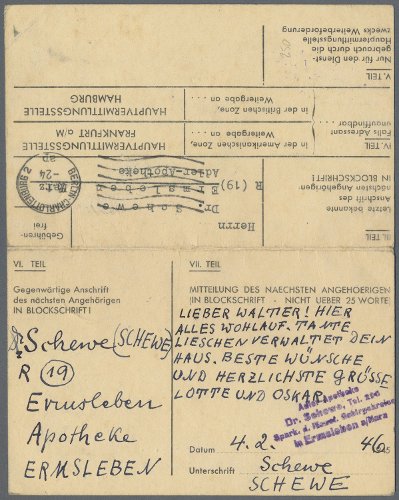 V. TEIL
Nur für den Dienst-
gebrauch durch die
Hauptermittlungsstelle
zwecks Weiterbeförderung
IV. TEIL
Falls Adressant
unauffindbar
In der Amerikanischen Zone,
Weitergabe an
HAUPTVERMITTLUNGSSTELLE
FRANKFURT a/M
In der Britischen Zone,
Weitergabe an
HAUPTVERMITTLUNGSSTELLE
HAMBURG
III. TEIL
Letzte bekannte
Anschrift des
nächsten Angehörigen
IN BLOCKSCHRIFT!
Gebühren-
frei
Herrn
Dr. Schewe
R (19) Ermsleben
Adler-Apotheke
BERLIN-CHARLOTTENBURG 2
ap
VI. TEIL
Gegenwärtige Anschrift
des nächsten Angehörigen
IN BLOCKSCHRIFT!
Dr Schewe (SCHEWE)
R (19)
Ermsleben
Apotheke
ERMSLEBEN
VII. TEIL
MITTEILUNG DES NAECHSTEN ANGEHOERIGEN
(IN BLOCKSCHRIFT - NICHT UEBER 25 WORTE)
LIEBER WALTER! HIER
ALLES WOHLAUF. TANTE
LIESCHEN VERWALTET DEIN
HAUS. BESTE WÜNSCHE
UND HERZLICHSTE GRÜSSE
LOTTE UND OSKAR.
Adler-Apotheke
Dr. Schewe, Tel.
in Ermsleben a/Harz
Datum 4. 2. 46
Unterschrift Schewe
SCHEWE